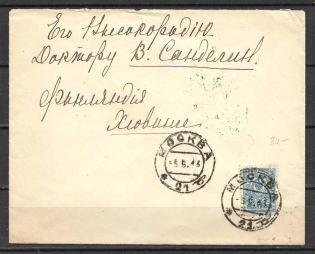 Его Высокородію
Доктору В. Санделин.
Финляндія
Хювинге
30-
МОСКВА
-3.6.13
21
МОСКВА
-3.6.13
21